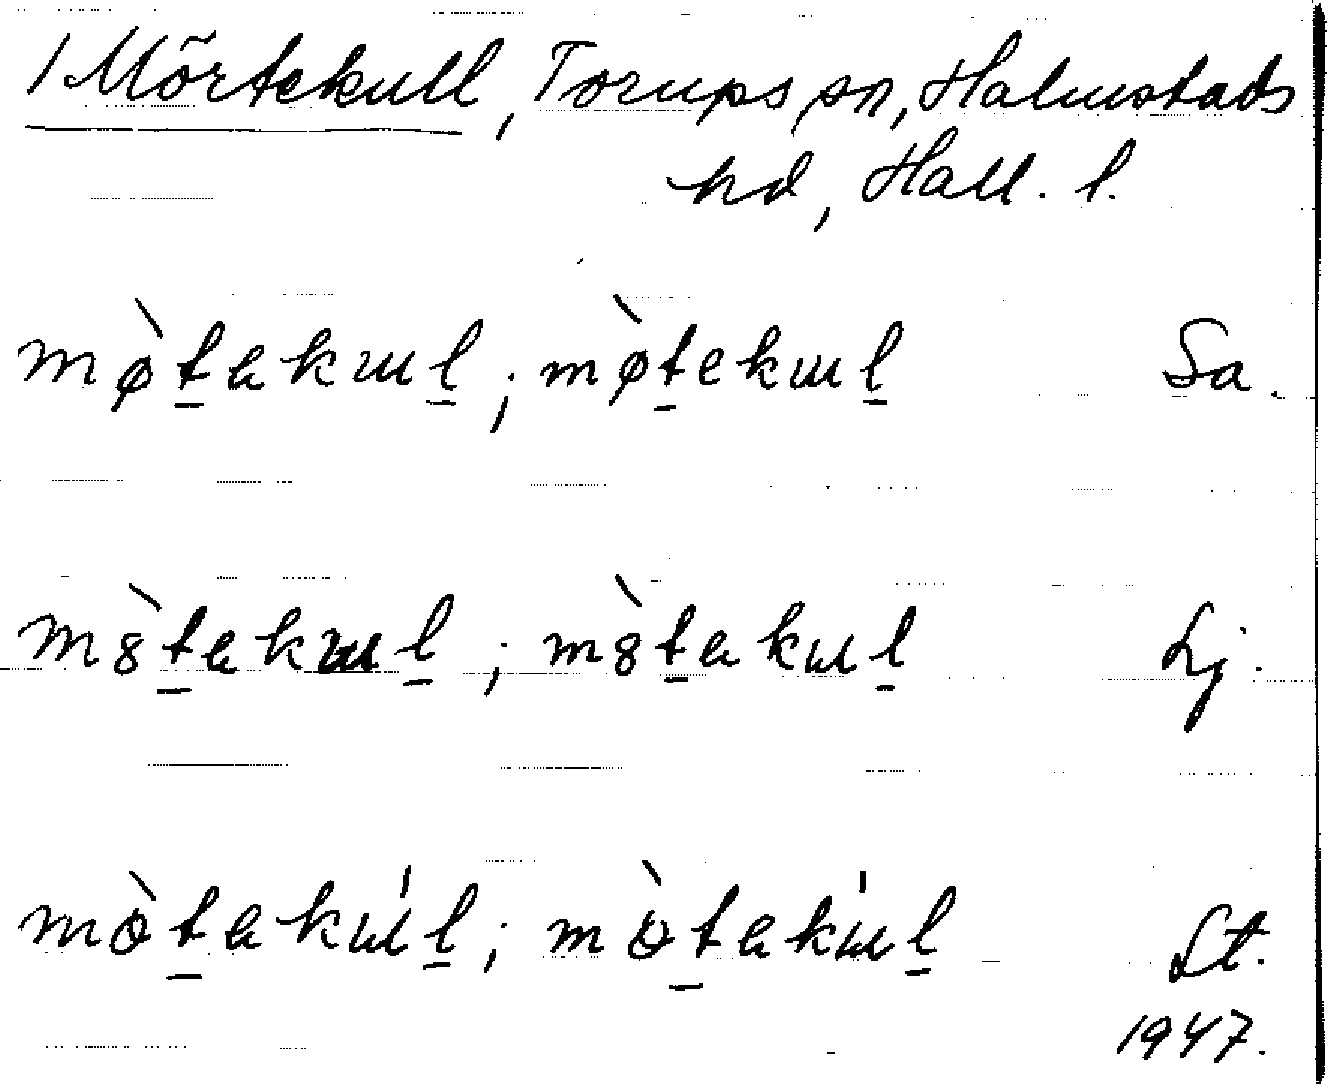 1 Mörtekull, Torups sn, Halmstads
hd, Hall. l.
mø̀t̲akɯl̲; mø̀t̲ekɯl̲ Sa.
m8̀t̲akɯl̲; m8̀t̲akɯl̲ Lj.
mòt̲akɯ́l̲; mòt̲akɯ́l̲ St.
1947.